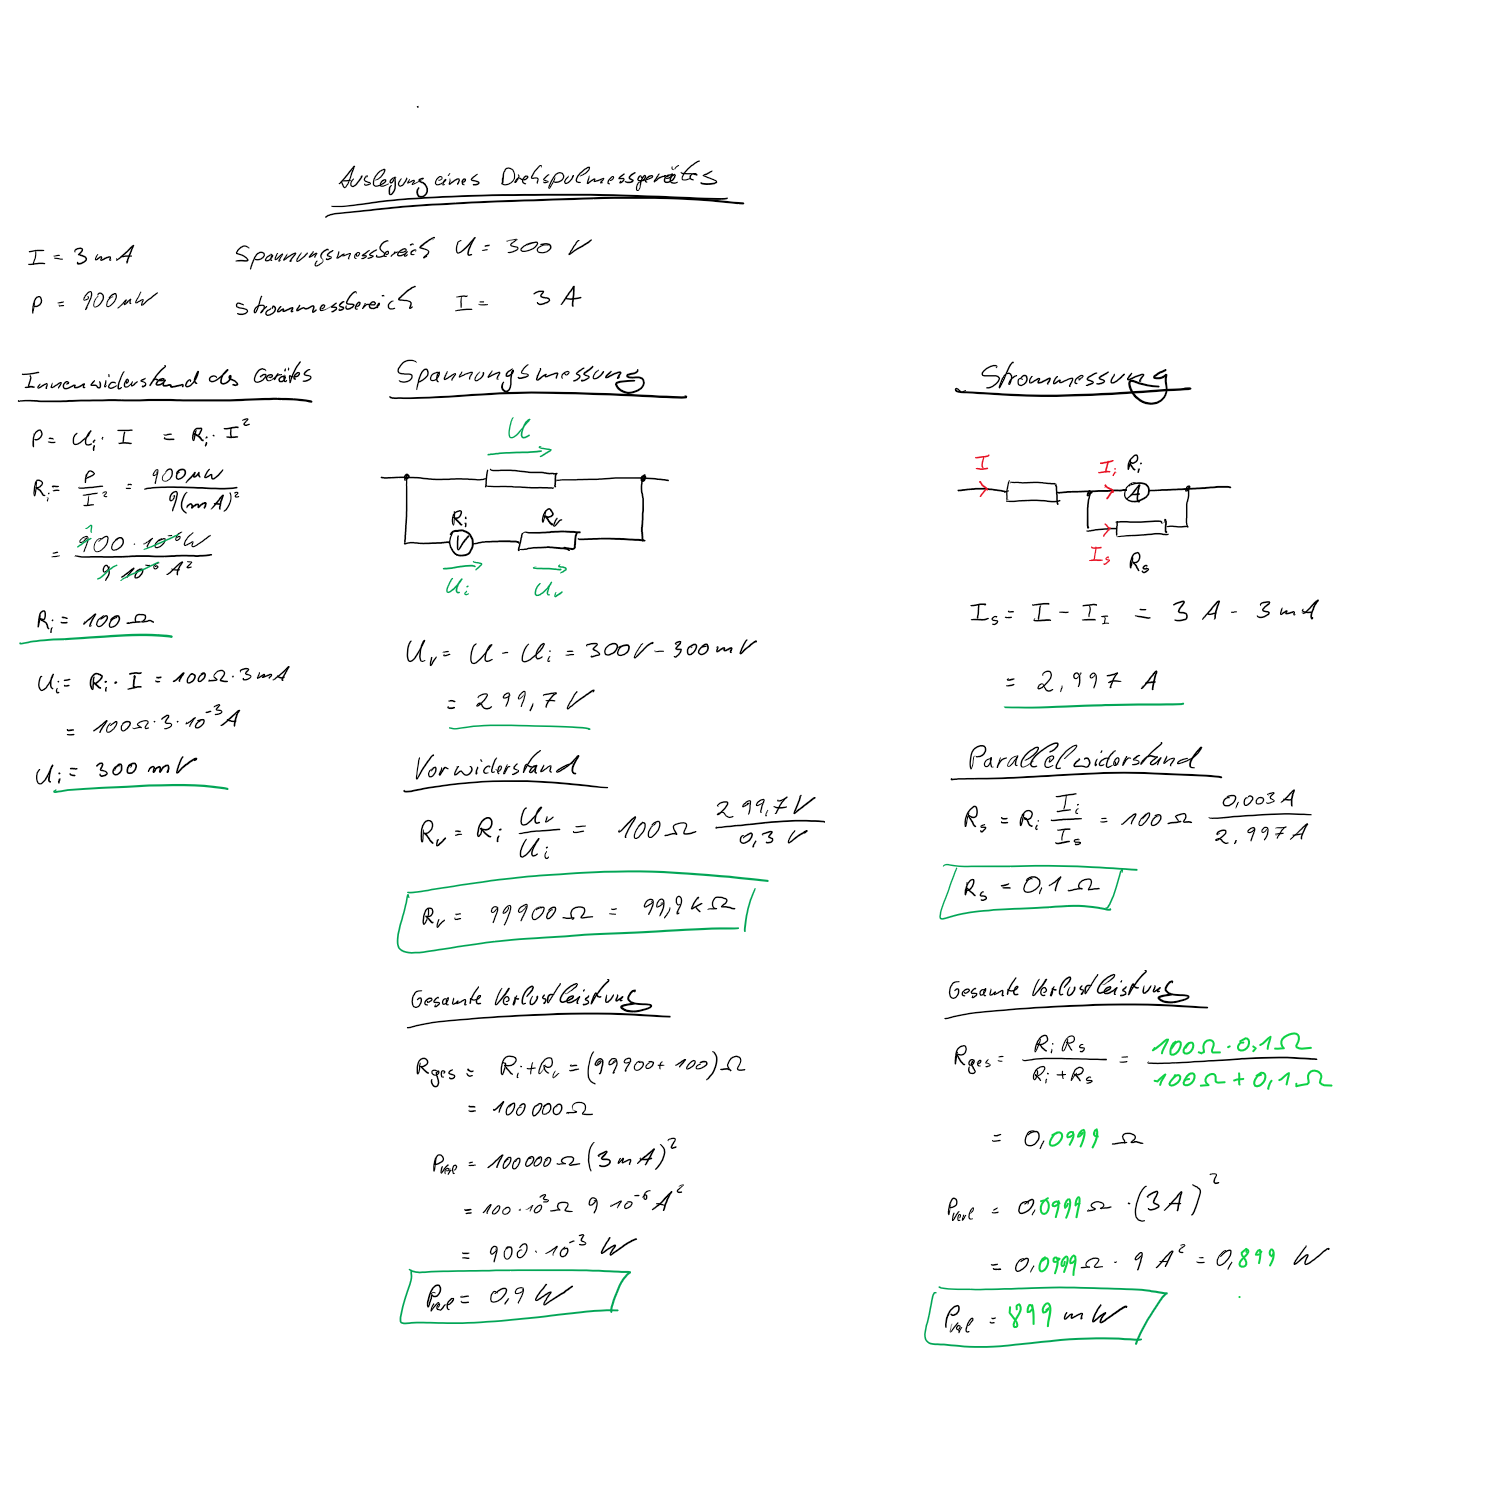 Auslegung eines Drehspulmessgerätes
I = 3 mA
Spannungsmessbereich U = 300 V
P = 900 µW
Strommessbereich I = 3 A
Innenwiderstand des Gerätes
P = Ui · I = Ri · I²
Ri = P / I² = 900 µW / 9(mA)²
= 900 · 10⁻⁶ W / 9 10⁻⁶ A²
1
Ri = 100 Ω
Ui = Ri · I = 100Ω · 3 mA
= 100Ω · 3 · 10⁻³ A
Ui = 300 mV
Spannungsmessung
U
Ri
Rv
V
Ui
Uv
Uv = U - Ui = 300V - 300 mV
= 299,7 V
Vorwiderstand
Rv = Ri Uv / Ui = 100Ω 299,7 V / 0,3 V
Rv = 99900 Ω = 99,9 kΩ
Gesamte Verlustleistung
Rges = Ri + Rv = (99900 + 100) Ω
= 100 000 Ω
Pverl = 100 000 Ω (3 mA)²
= 100 · 10³ Ω 9 10⁻⁶ A²
= 900 · 10⁻³ W
Pverl = 0,9 W
Strommessung
I
Ii
Ri
A
Is
Rs
Is = I - II = 3 A - 3 mA
= 2,997 A
Parallelwiderstand
Rs = Ri Ii / Is = 100 Ω 0,003 A / 2,997 A
Rs = 0,1 Ω
Gesamte Verlustleistung
Rges = Ri Rs / Ri + Rs = 100 Ω · 0,1 Ω / 100 Ω + 0,1 Ω
= 0,0999 Ω
Pverl = 0,0999 Ω · (3 A)²
= 0,0999 Ω · 9 A² = 0,899 W
Pverl = 899 mW